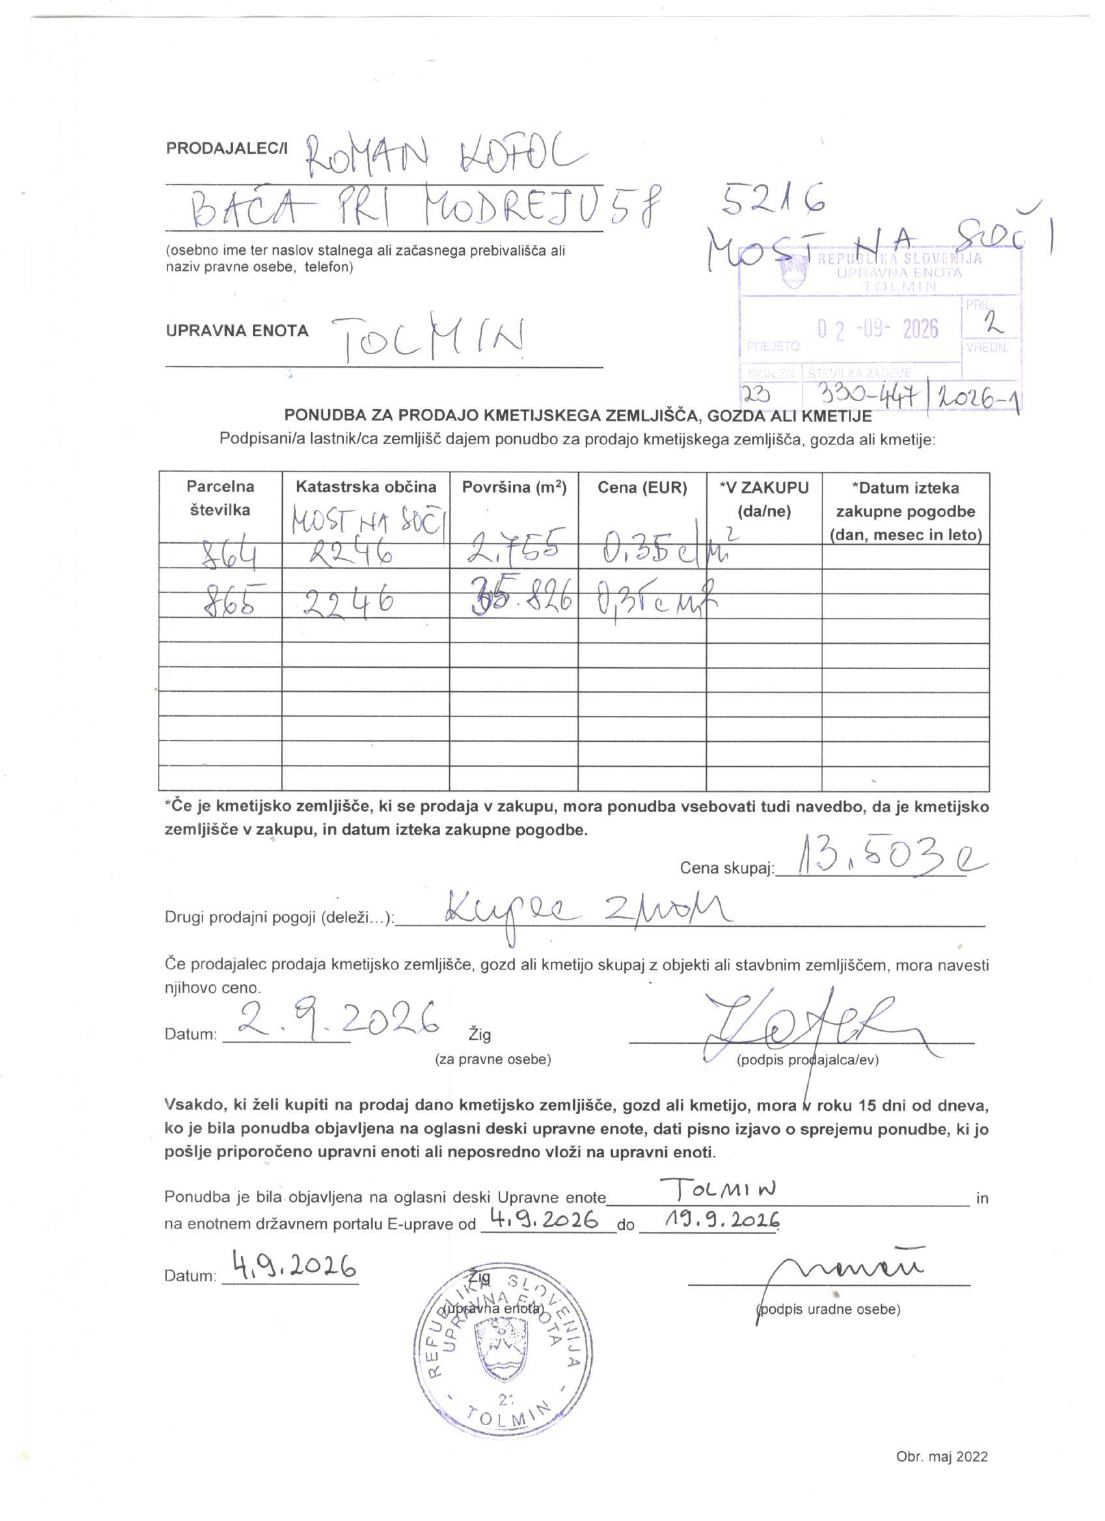 PRODAJALEC/I ROMAN KOFOL
BAČA PRI MODREJU 58 5216
MOST NA SOČI
(osebno ime ter naslov stalnega ali začasnega prebivališča ali
naziv pravne osebe, telefon)
REPUBLIKA SLOVENIJA
UPRAVNA ENOTA
TOLMIN
PREJETO 02-09-2026 PRIL. 2
VREDN.
SIGN.ZN. ŠTEVILKA ZADEVE
23 330-447/2026-1
UPRAVNA ENOTA TOLMIN
PONUDBA ZA PRODAJO KMETIJSKEGA ZEMLJIŠČA, GOZDA ALI KMETIJE
Podpisani/a lastnik/ca zemljišč dajem ponudbo za prodajo kmetijskega zemljišča, gozda ali kmetije:
Parcelna številka Katastrska občina Površina (m²) Cena (EUR) *V ZAKUPU (da/ne) *Datum izteka zakupne pogodbe (dan, mesec in leto)
MOST NA SOČI
864 2246 2.755 0,35 €/m²
865 2246 35.826 0,35 € m²
*Če je kmetijsko zemljišče, ki se prodaja v zakupu, mora ponudba vsebovati tudi navedbo, da je kmetijsko
zemljišče v zakupu, in datum izteka zakupne pogodbe.
Cena skupaj: 13.503 €
Drugi prodajni pogoji (deleži...): Kupec znan
Če prodajalec prodaja kmetijsko zemljišče, gozd ali kmetijo skupaj z objekti ali stavbnim zemljiščem, mora navesti
njihovo ceno.
Datum: 2.9.2026 Žig
(za pravne osebe) (podpis prodajalca/ev)
Vsakdo, ki želi kupiti na prodaj dano kmetijsko zemljišče, gozd ali kmetijo, mora v roku 15 dni od dneva,
ko je bila ponudba objavljena na oglasni deski upravne enote, dati pisno izjavo o sprejemu ponudbe, ki jo
pošlje priporočeno upravni enoti ali neposredno vloži na upravni enoti.
Ponudba je bila objavljena na oglasni deski Upravne enote TOLMIN in
na enotnem državnem portalu E-uprave od 4.9.2026 do 19.9.2026
Datum: 4.9.2026
Žig
(upravna enota) (podpis uradne osebe)
REPUBLIKA SLOVENIJA
UPRAVNA ENOTA
21
- TOLMIN -
Obr. maj 2022